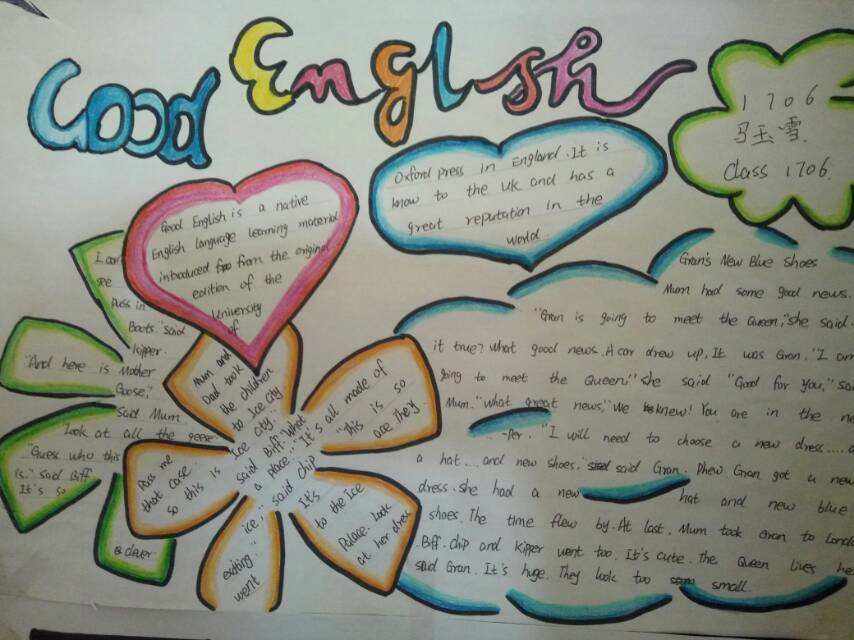 Good English
1706
马玉雪
Class 1706
Good English is a native
English language learning material
introduced from the original
edition of the
Kniversity
of
Oxford press in England. It is
know to the UK and has a
great reputation in the
world
I can
see
Puss in
Boots." said
kipper.
"And here is Mother
Goose,"
said Mum
Look at all the geese
"Guess who this
is." said Biff
It's so
clever
Mum and
Dad took
the children
to Ice city
Ice city."
said Biff. "What
a place." "It's all made of
ice." said chip
"This is so
ace. they
Pass me
that case.
so this is
It's
to the Ice
Palace. Look
at her dress
exiting."
went
Gran's New Blue Shoes
Mum had some good news.
"Gran is going to meet the Queen," she said.
it true? what good news. A car drew up, It was Gran. "I am
going to meet the Queen!" She said "Good for you,"
Mum. "what great news," We knew! You are in the
"I will need to choose a new dress....
a hat... and new shoes." said Gran. Phew Gran got a new
dress. she had a new hat and new blue
shoes. The time flew by. At last, Mum took Gran to
Biff. chip and kipper went too. It's cute. the Queen lives
said Gran. It's huge. They look too small.